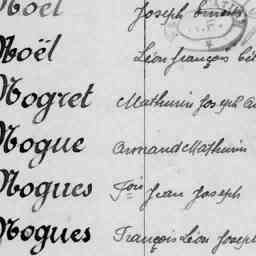 Noël Joseph
Noël Léon françois
Nogret Mathurin Joseph
Nogue Armand Mathurin
Nogues Fois Jean Joseph
Nogues François Léon Joseph